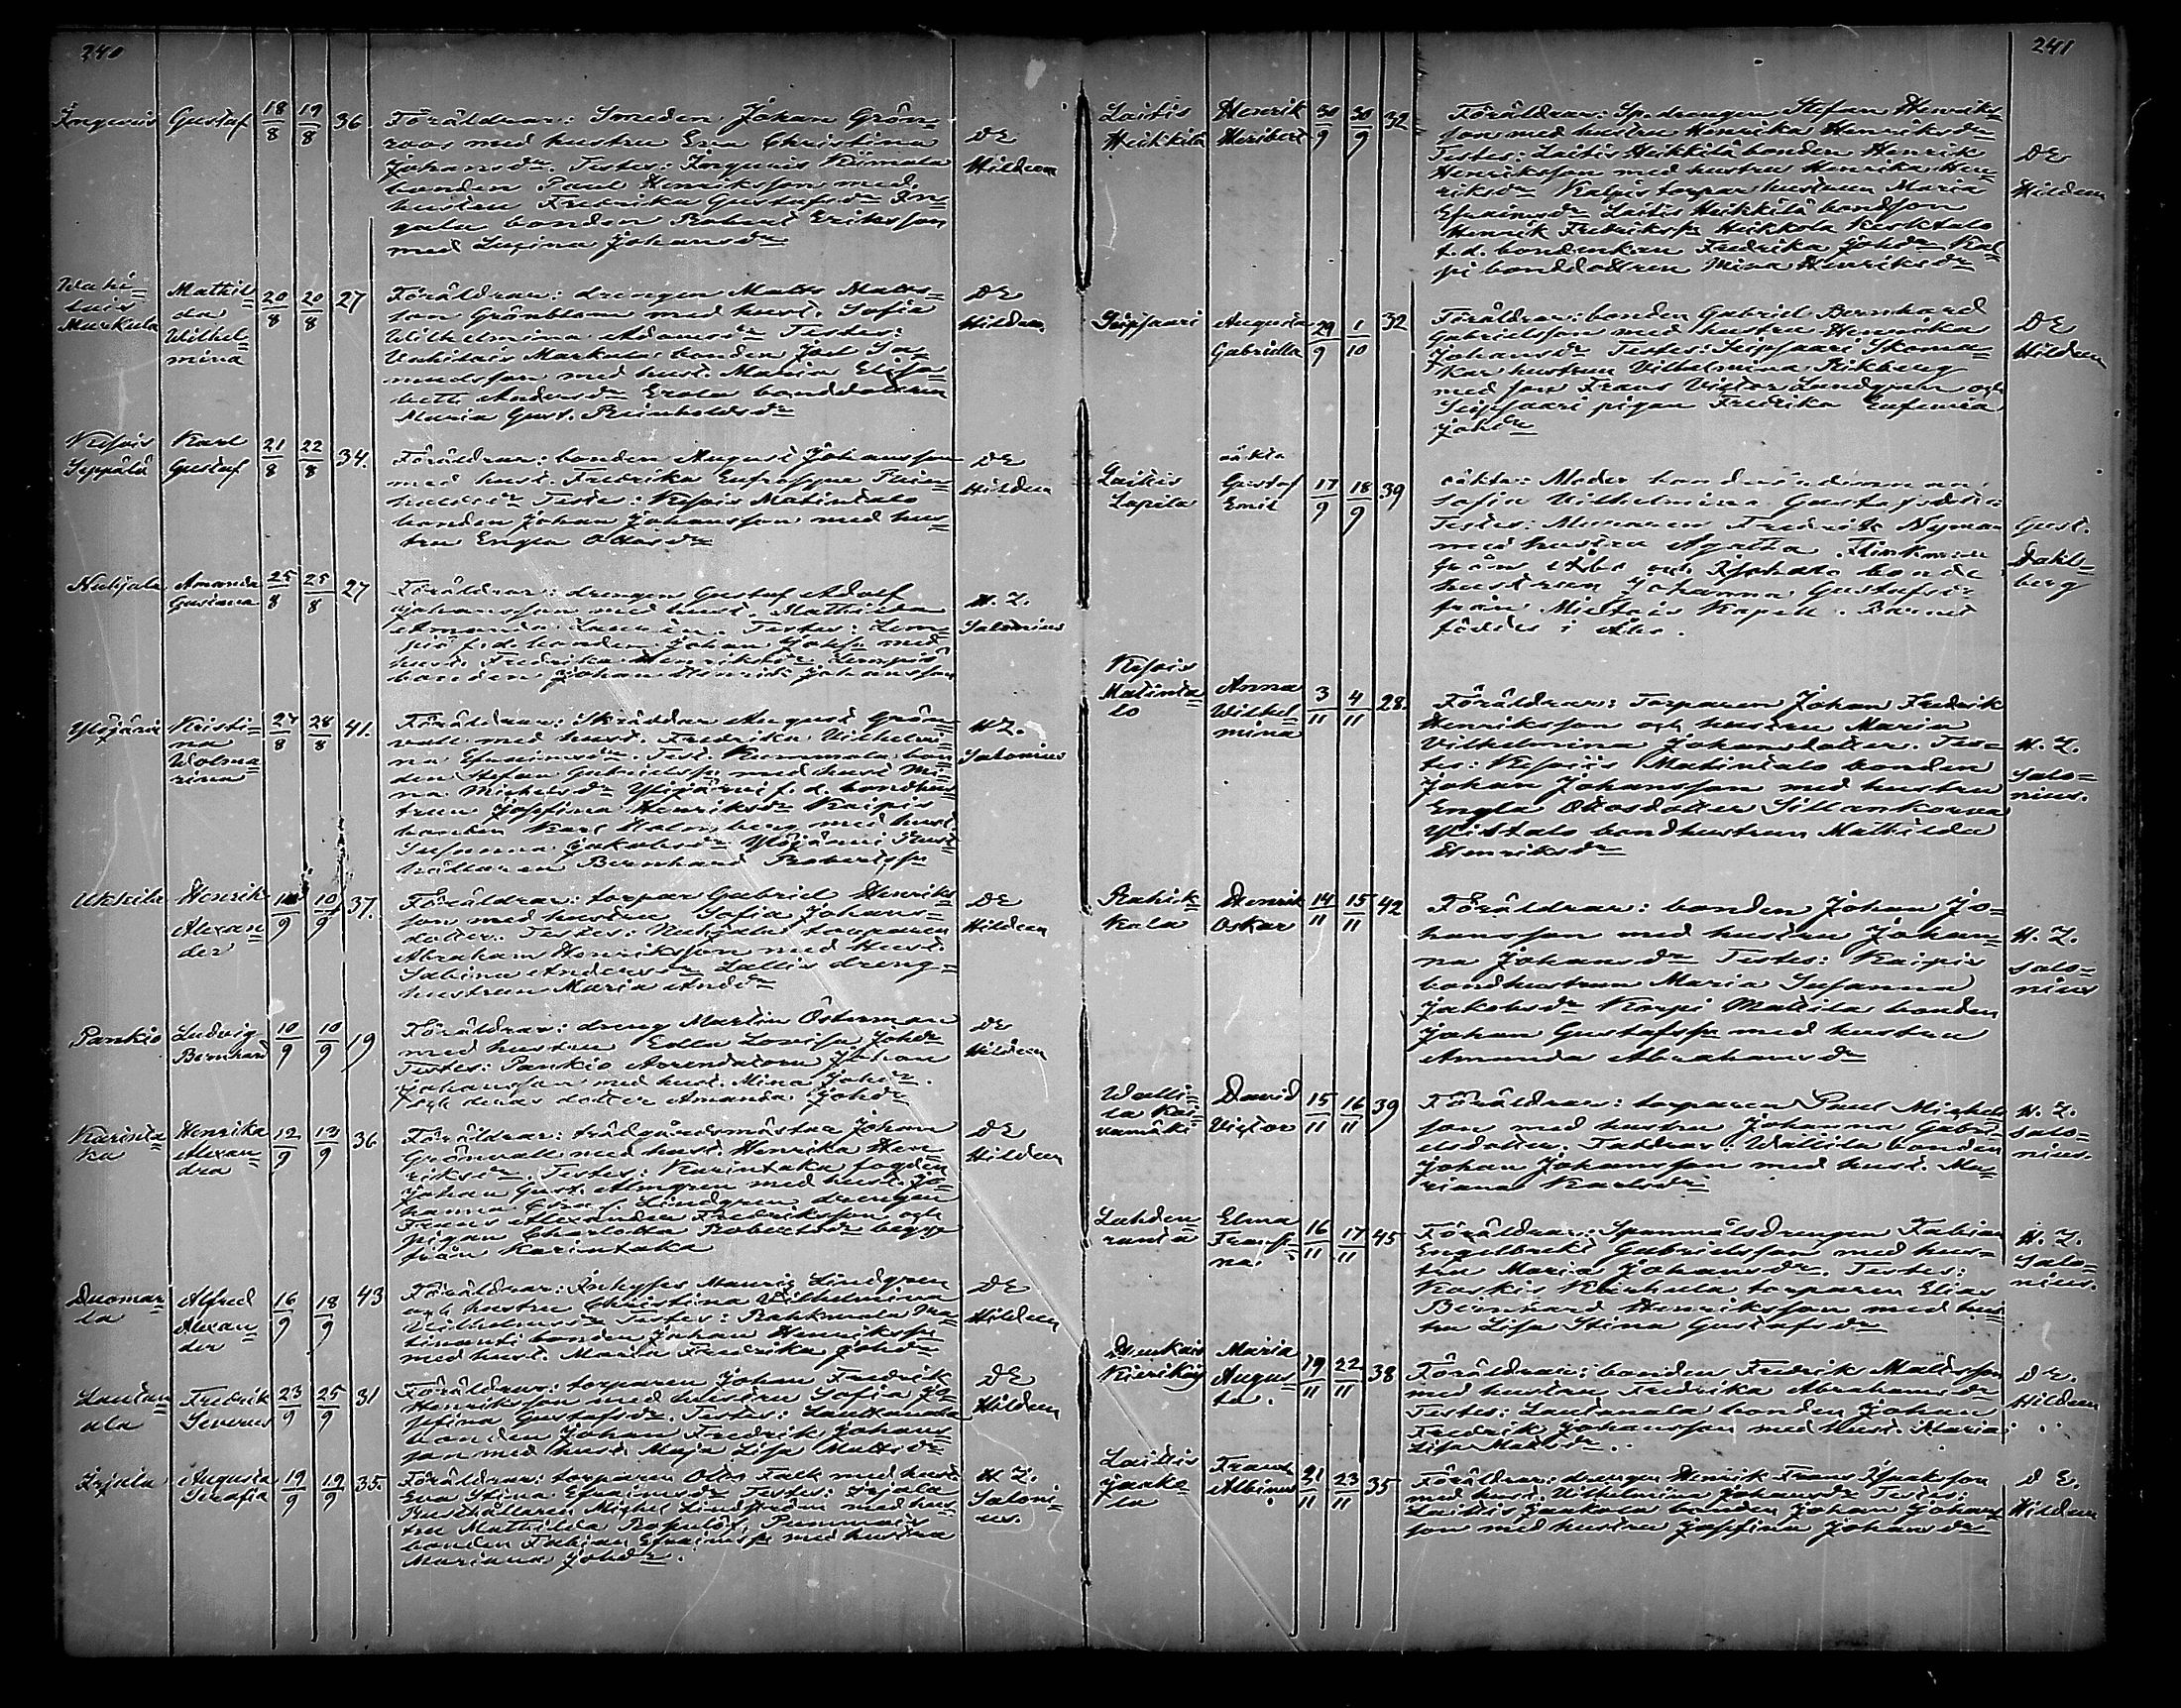 240
Ingeris Gustaf 18/8 19/8 36 Föräldrar: Smeden Johan Grön=
roos med hustru Eva Christina
Johansdr. Testes: Ingeris Kiimala
bonden Paul Henriksson med
hustru Fredrika Gustafsdr In=
gala bonden Robert Eriksson
med Lovina Johansdr
DE
Hildeen
Markula
Mathil=
da
Wilhel=
mina
20/8 20/8 27 Föräldrar: drengen Matts Matts=
son Grönblom med hust. Sofia
Wilhelmina Adamsdr Testes:
Markula bonden
med hust. Maria Elisa=
beth Andersdr Erola bonddottren
Maria Gust. Reinholdsdr
DE
Hildeen
Seppälä
Karl
Gustaf
21/8 22/8 34. Föräldrar: bonden August Johansson
med hust. Fredrika Eufrosyne
Testes: Matintalo
bonden Johan Johansson med hus=
tru Engla Ottosdr
DE
Hildeen
Nuhjala Amanda
Gusiana
25/8 25/8 27 Föräldrar: drengen Gustaf Adolf
Johansson med hust. Mathilda
Amanda Testes:
f.d. bonden Johan Johss. med
hust. Fredrika Henriksdr
bonden Johan Henrik Johansson
H. Z.
Salonius
Ylöjärvi Kristi=
na
Wolma=
rina
27/8 28/8 41. Föräldrar: Skräddar August Grön=
vall med hust. Fredrika Vilhelmi=
na Efraimsdr. Test. bon=
den Stefan Gabrielsson med hust Mi=
na Michelsdr Ylöjärvi f.d. bondhus=
trun Josefina Henriksdr Kaipis
bonden Karl Holmberg med hust
Susanna Jakobsdr Ylöjärvi Rust=
hållaren Bernhard Robertss.
HZ.
Salonius
Ukkila Henrik
Alexan=
der
10/9 37. Föräldrar: torpar Gabriel Henriks=
son med hustru Sofia Johans=
dotter. Testes: Nuhjala torparen
Abraham Henriksson med hust
Sabina Andersdr Lallis dreng=
hustrun Maria Anddr
DE
Hildeen
Pankio Ludvig
Bernhard
10/9 10/9 19 Föräldrar: dreng Martin Österman
med hustru Edla Lovisa Johdr
Testes: Pankio Arrendatorn Johan
Johansson med hust. Mina Johdr.
och deras dotter Amanda Johdr
DE
Hildeen
Karinta=
ka
Henrika
Alexan=
dra
12/9 13/9 36 Föräldrar: trädgårdsmästar Johan
Grönvall med hust. Henrika Hen=
riksdr. Testes: Karintaka fogden
Johan Gust. Almgren med hust. Jo=
hanna Lindgren drengen
Frans Alexander Fredriksson och
pigan Charlotta Robertsdr begge
från Karintaka
DE
Hildeen
Duomar=
la
Alfred
Alexan=
der
16/9 18/9 43 Föräldrar: Inhyses Mauriz Lindgren
och hustru Christina Vilhelmina
Vilhelmsdr Testes:
bonden Johan Henrikss.
med hust. Maria Fredrika Johdr
DE
Hildeen
Lautan=
ala
Fredrik
Severus
23/9 25/9 31 Föräldrar: torparen Johan Fredrik
Henriksson med hustru Sofia Jo=
sefina Gustafsdr. Testes: Lautanala
bonden Johan Fredrik Johans=
son med hust. Maja Lisa Mattsdr
DE
Hildeen
Irjala Augusta
Serafia
19/9 19/9 35. Föräldrar: torparen Otto Falk med hust
Eva Stina Efraimsdr Testes: Irjala
Rusthållaren Michel Lindström med hus=
tru Mathilda
bonden Fabian Efraimss. med hustru
Mariana Johdr.
H Z.
Saloni=
us.
241
Laitis
Heikkilä
Henrik
Heribert
30/9 30/9 32 Föräldrar: Sp.drengen Stefan Henriks=
son med hustru Henrika Henriksdr
Testes: Laitis Heikkilä bonden Henrik
Henriksson med hustru Henrika Hen=
riksdr torpar hustrun Maria
Efraimsdr Laitis Heikkilä bondson
Henrik Fredrikss. Heikkola
f.d. bondenkan Fredrika Johdr
bonddottren Mina Henriksdr
DE
Hildeen
Seipsaari Augusta
Gabriella
29/9 1/10 32 Föräldrar: bonden Gabriel Bernhard
Gabrielsson med hustru Henrika
Johansdr Testes: Seipsaari Skoma=
kar hustrun Vilhelmina Rikberg
med son Frans Victor Lundgren och
Seipsaari pigan Fredrika Eufemia
Johdr
DE
Hildeen
Laitis
Lapila
oäkta
Gustaf
Emil
17/9 18/9 39 oäkta: Moder
Sofia Vilhelmina Gustafsdotter
Testes: Muraren Fredrik Nyman
med hustru Agatha
från Åbo och bonde
hustrun Johanna Gustafsdr
från Mietois Kapell. Barnet
föddes i Åbo.
Gust.
Dahl=
berg
Matinta=
lo
Anna
Wilhel=
mina
3/11 4/11 28. Föräldrar: Torparen Johan Fredrik
Henriksson och hustru Maria
Vilhelmina Johansdotter. Tes=
tes: Matintalo bonden
Johan Johansson med hustru
Engla Ottosdotter Sillankorva
Ylistalo bondhustrun Mathilda
Henriksdr
H. Z.
Salo=
nius.
Rahik=
kala
Henrik
Oskar
14/11 15/11 42 Föräldrar: bonden Johan Jo=
hansson med hustru Johan=
na Johansdr Testes: Kaipis
bondhustrun Maria Susanna
Jakobsdr Korpi Mattila bonden
Johan Gustafss. med hustru
Amanda Abrahamsdr
H. Z.
Salo=
nius
Walli=
la Kai=
vamäki
David
Victor
15/11 16/11 39 Föräldrar: torparen Paul Michels
son med hustru Johanna Gabri=
elsdotter. Faddrar: Wallila bonden
Johan Johansson med hust. Ma=
riana Karlsdr
H. Z.
Salo=
nius.
Lahden=
ranta
Elma
Fransi=
na.
16/11 17/11 45 Föräldrar: Spanmålsdrengen Fabian
Engelbrekt Gabrielsson med hus=
tru Maria Johansdr. Testes:
Kaskis Karhula torparen Elias
Bernhard Henriksson med hus
tru Lisa Stina Gustafsdr
H. Z.
Salo=
nius.
Maria
Augus=
ta.
19/11 22/11 38 Föräldrar: bonden Fredrik Mattsson
med hustru Fredrika Abrahamsdr
Testes: Lautanala bonden Johan
Fredrik Johansson med hust. Maria
Lisa Mattsdr.
DE.
Hildeen
Laitis
Jaako=
la
Frans
Albinus
21/11 23/11 35 Föräldrar: drengen Henrik Frans Isaksson
med hust. Vilhelmina Johansdr Testes:
Laitis Jaakola bonden Johan Johans
son med hustru Josefina Johansdr
D E.
Hildeen